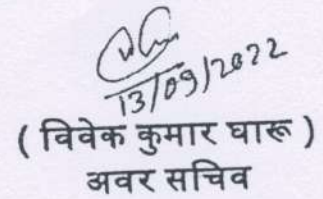 13/09/2022
( विवेक कुमार घारू )
अवर सचिव